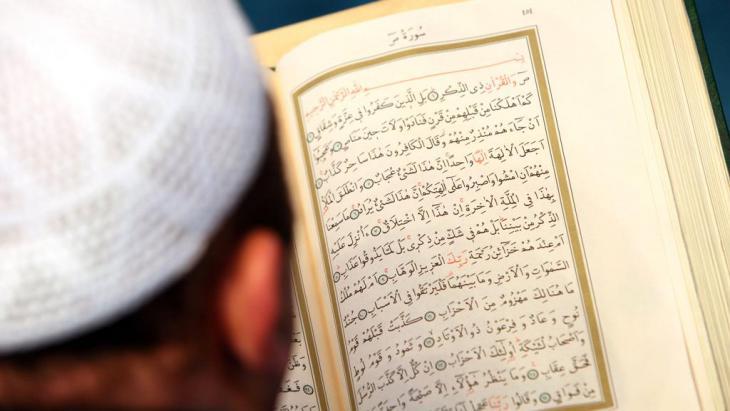 سُورَةُ صٓ
بِسْــــمِ اللّٰهِ الرَّحْمٰنِ الرَّحِيمِ
صٓ وَالْقُرْاٰنِ ذِي الذِّكْرِ بَلِ الَّذِينَ كَفَرُوا فِي عِزَّةٍ وَشِقَاقٍ
كَمْ اَهْلَكْنَا مِنْ قَبْلِهِمْ مِنْ قَرْنٍ فَنَادَوْا وَلَاتَ حِينَ مَنَاصٍ وَعَجِبُوا
اَنْ جَاءَهُمْ مُنْذِرٌ مِنْهُمْ وَقَالَ الْكَافِرُونَ هٰذَا سَاحِرٌ كَذَّابٌ
اَجَعَلَ الْاٰلِهَةَ اِلٰهًا وَاحِدًا اِنَّ هٰذَا لَشَيْءٌ عُجَابٌ وَانْطَلَقَ الْمَلَاُ
مِنْهُمْ اَنِ امْشُوا وَاصْبِرُوا عَلٰى اٰلِهَتِكُمْ اِنَّ هٰذَا لَشَيْءٌ يُرَادُ مَا سَمِعْنَا
بِهٰذَا فِي الْمِلَّةِ الْاٰخِرَةِ اِنْ هٰذَا اِلَّا اخْتِلَاقٌ ءَاُنْزِلَ عَلَيْهِ
الذِّكْرُ مِنْ بَيْنِنَا بَلْ هُمْ فِي شَكٍّ مِنْ ذِكْرِي بَلْ لَمَّا يَذُوقُوا عَذَابِ
اَمْ عِنْدَهُمْ خَزَائِنُ رَحْمَةِ رَبِّكَ الْعَزِيزِ الْوَهَّابِ اَمْ لَهُمْ مُلْكُ
السَّمٰوَاتِ وَالْاَرْضِ وَمَا بَيْنَهُمَا فَلْيَرْتَقُوا فِي الْاَسْبَابِ جُنْدٌ
مَا هُنَالِكَ مَهْزُومٌ مِنَ الْاَحْزَابِ كَذَّبَتْ قَبْلَهُمْ قَوْمُ
نُوحٍ وَعَادٌ وَفِرْعَوْنُ ذُو الْاَوْتَادِ وَثَمُودُ وَقَوْمُ لُوطٍ
وَاَصْحَابُ لْـَٔيْكَةِ اُولٰئِكَ الْاَحْزَابُ اِنْ كُلٌّ اِلَّا كَذَّبَ الرُّسُلَ
فَحَقَّ عِقَابِ وَمَا يَنْظُرُ هٰؤُلَاءِ اِلَّا صَيْحَةً وَاحِدَةً
مِنْ فَوَاقٍ وَقَالُوا رَبَّنَا